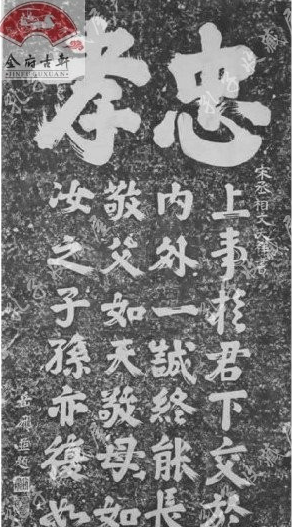 金府古軒
·JINFU GUXUAN·
忠孝
宋丞相文天祥書
上事於君下交於
內外一誠終能長
敬父如天敬母如
汝之子孫亦復如
岳飛